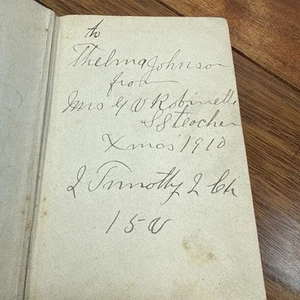 to
Thelma Johnson
from
Mrs G V Robinette
S S teacher
Xmas 1910
2 Timothy 2 Ch
15 V